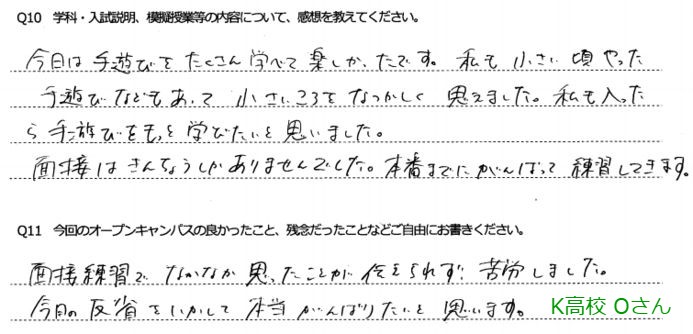 Q10 学科・入試説明、模擬授業等の内容について、感想を教えてください。
今日は手遊びをたくさん学べて楽しかったです。私も小さい頃やった
手遊びなどもあって小さいころをなつかしく思えました。私も入った
ら手遊びをもっと学びたいと思いました。
面接はきんちょうしかありませんでした。本番までにがんばって練習してきます。
Q11 今回のオープンキャンパスの良かったこと、残念だったことなどご自由にお書きください。
面接練習でなかなか思ったことが伝えられず、苦労しました。
今日の反省をいかして本当がんばりたいと思います。
K高校 Oさん